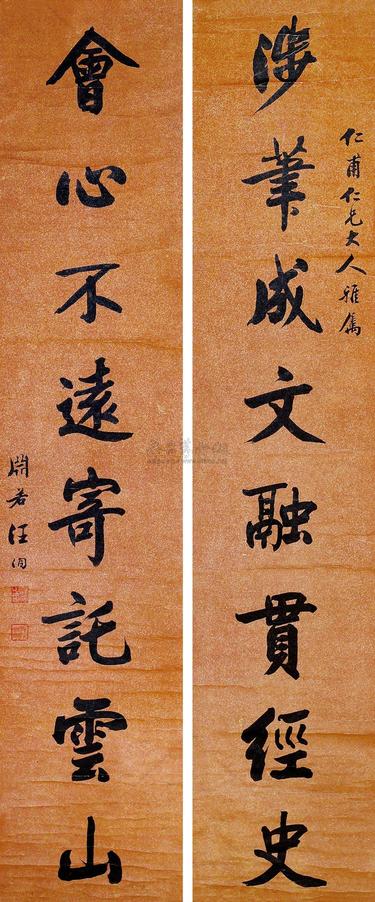 仁甫仁兄大人雅属
涉筆成文融貫經史
會心不遠寄託雲山
淵若汪洵